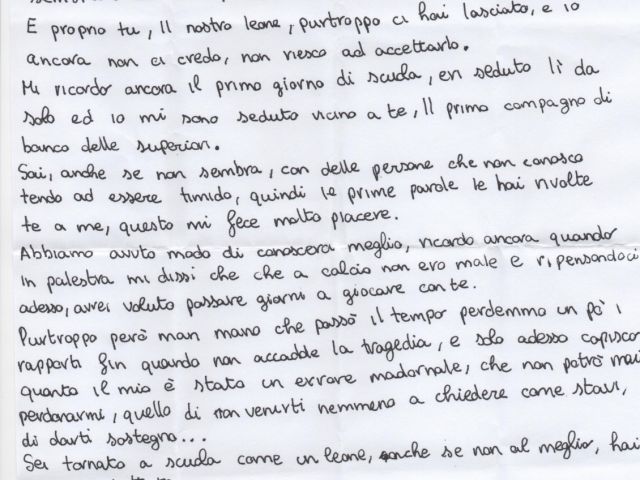 E proprio tu, Il nostro leone, purtroppo ci hai lasciato, e io
ancora non ci credo, non riesco ad accettarlo.
Mi ricordo ancora il primo giorno di scuola, eri seduto lì da
solo ed io mi sono seduto vicino a te, Il primo compagno di
banco delle superiori.
Sai, anche se non sembra, con delle persone che non conosco
tendo ad essere timido, quindi le prime parole le hai rivolte
te a me, questo mi fece molto piacere.
Abbiamo avuto modo di conoscerci meglio, ricordo ancora quando
in palestra mi dissi che che a calcio non ero male e ripensandoci
adesso, avrei voluto passare giorni a giocare con te.
Purtroppo però man mano che passò il tempo perdemmo un pò i
rapporti fin quando non accadde la tragedia, e solo adesso capisco
quanto il mio è stato un errore madornale, che non potrò mai
perdonarmi, quello di non venirti nemmeno a chiedere come stavi,
di darti sostegno...
Sei tornato a scuola come un leone, anche se non al meglio, hai